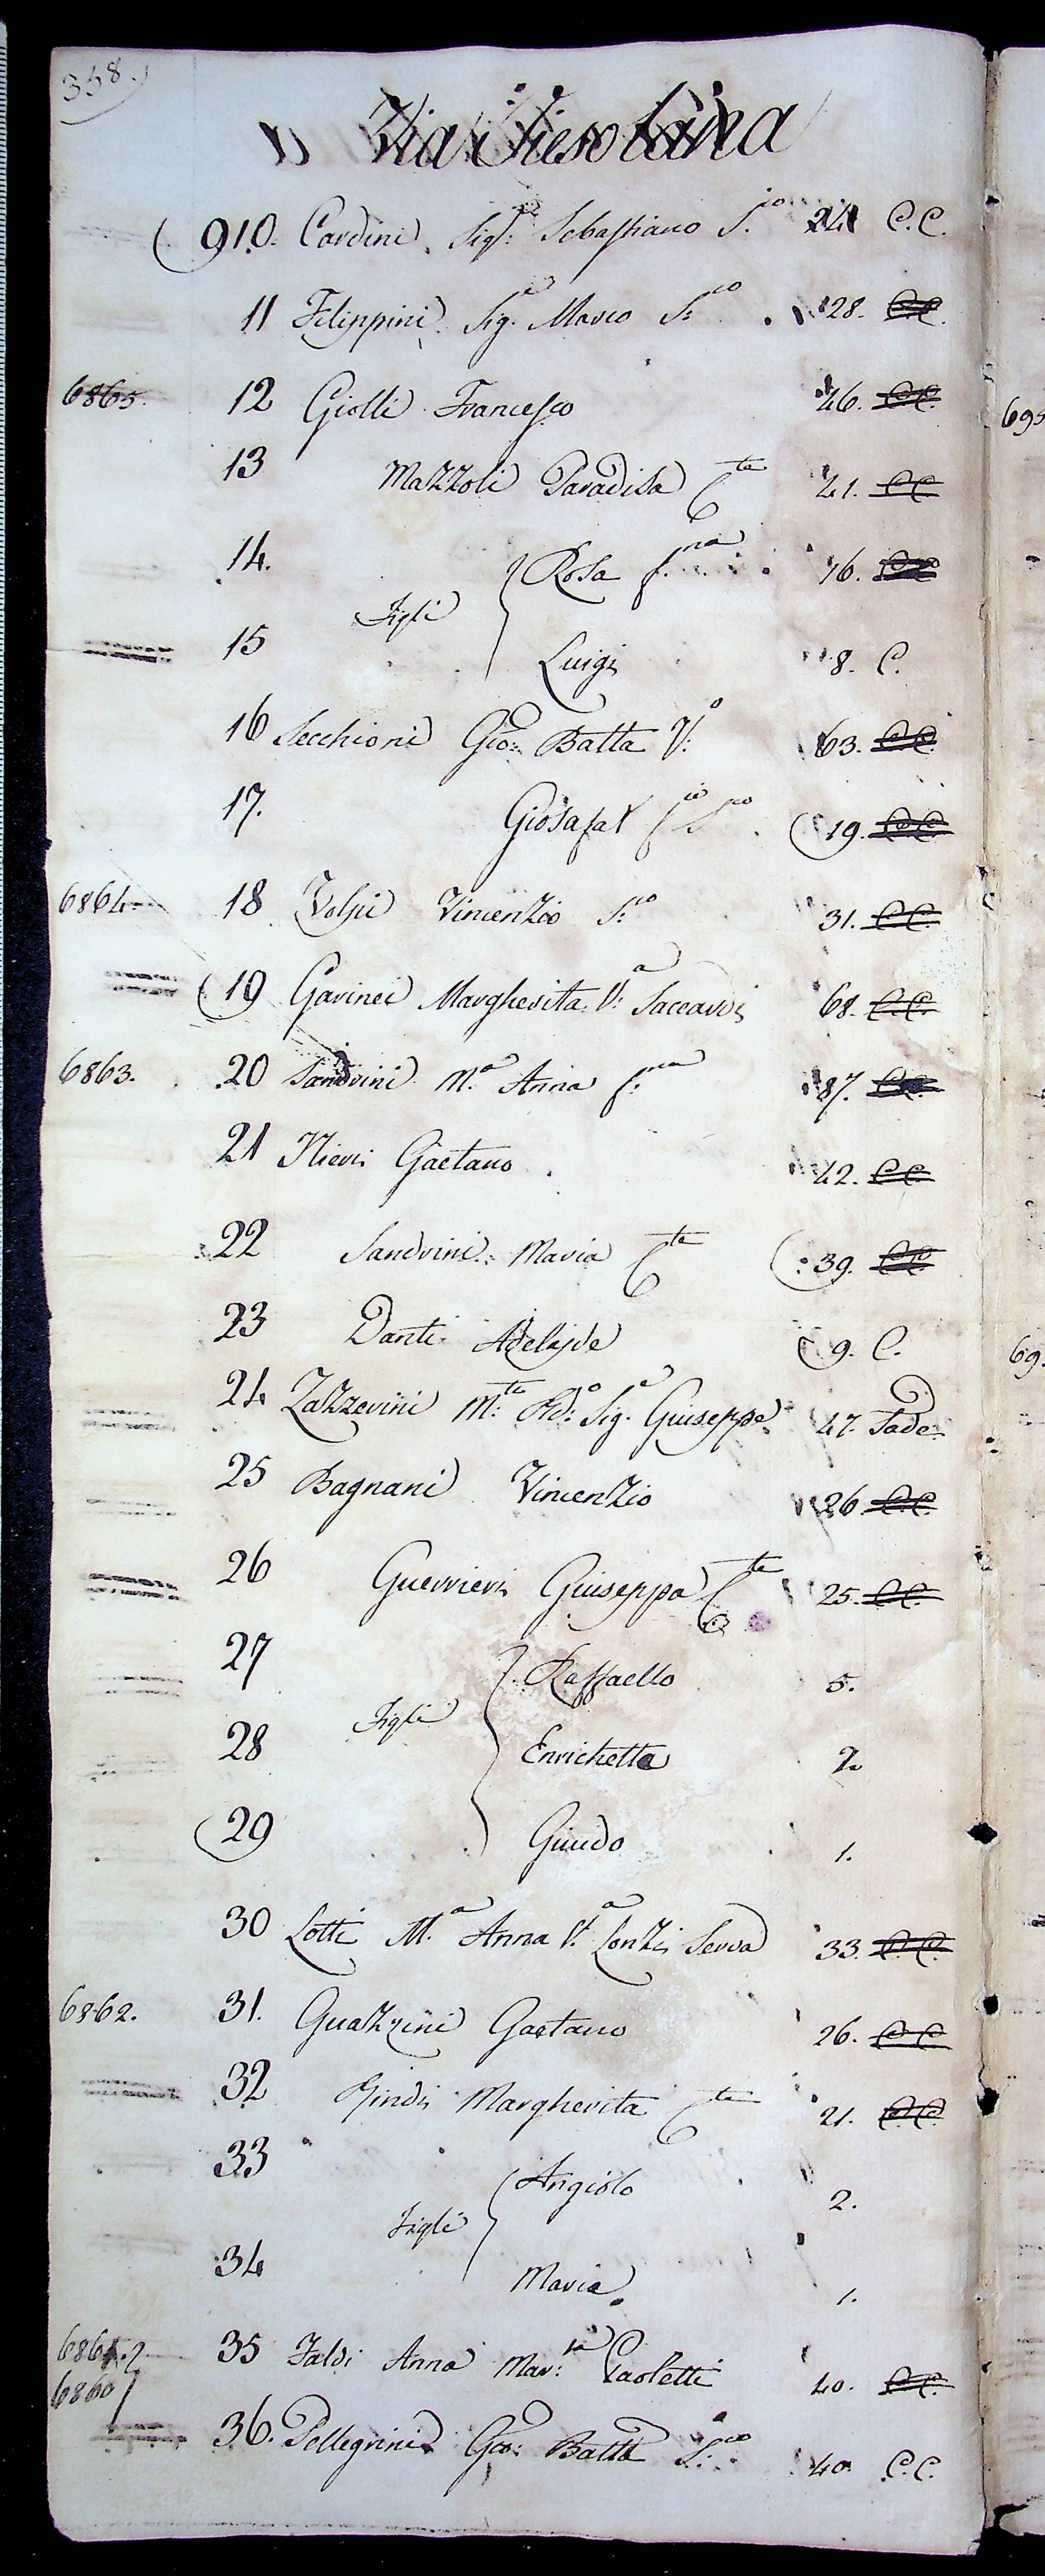 358.
Via Fiesolana
910. Cardini Sig.r Sebastiano S.io 24 C.C.
11 Filippini Sig.e Marco S.co 28. C.C.
6865. 12 Giolli Francesco 46. C.C.
13 Mazzoli Paradisa C.te 41. C.C.
14. Rosa f.na 16. C.C.
Figli
15 Luigi 8. C.
16 Secchioni Gio: Batta V.o 63. C.C.
17. Giosafat f.io S.co 19. C.C.
6864. 18 Volpi Vincenzio S.co 31. C.C.
19 Gavinei Margherita V.a Saccardi 68. C.C.
6863. 20 Sandrini M.a Anna f.na 37. C.C.
21 Nieri Gaetano 42. C.C.
22 Sandrini Maria C.te 39. C.C.
23 Danti Adelajde 9. C.
24 Zazzerini M.to Rd.o Sig.e Giuseppe 47. Sade
25 Bagnani Vincenzio 26. C.C.
26 Guerrieri Giuseppa C.te 25. C.C.
27 Raffaello 5.
Figli
28 Enrichetta 2.
29 Guido 1.
30 Lotti M.a Anna V.a Conti Serva 33. C.C.
6862. 31. Guazzini Gaetano 26. C.C.
32 Margherita C.te 21. C.C.
33 Angiolo 2.
Figli
34 Maria 1.
6861. 35 Faldi Anna Mar.ta Paoletti 40. C.C.
6860
36. Pellegrini Gio: Batta S.co 40. C.C.